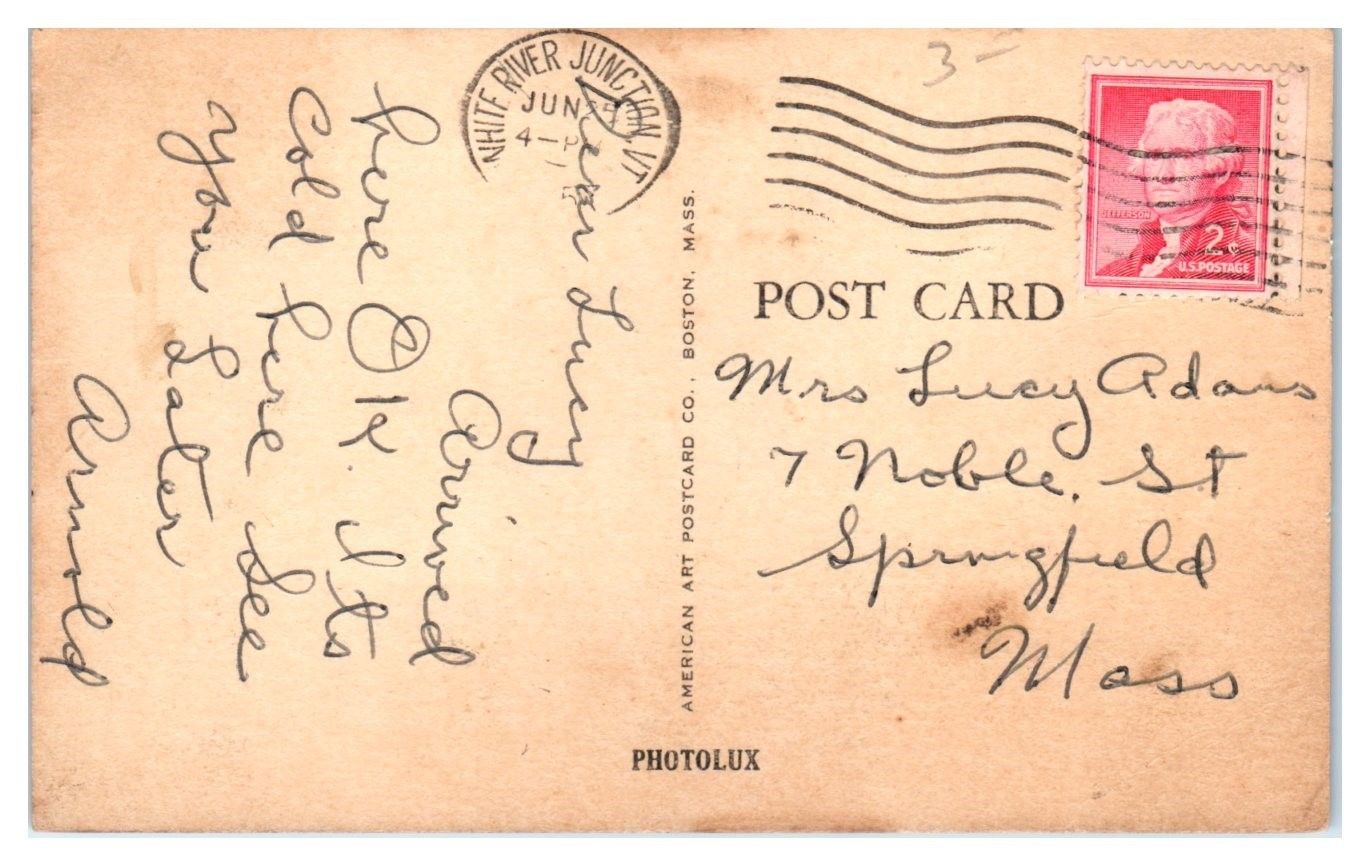 Dear Lucy
Arrived
here OK. Its
Cold here See
You Later
Arnold
WHITE RIVER JUNCTION, VT
JUN
4-P
3-
JEFFERSON
2¢
U.S. POSTAGE
POST CARD
Mrs Lucy Adams
7 Noble. St
Springfield
Mass
AMERICAN ART POSTCARD CO., BOSTON, MASS.
PHOTOLUX